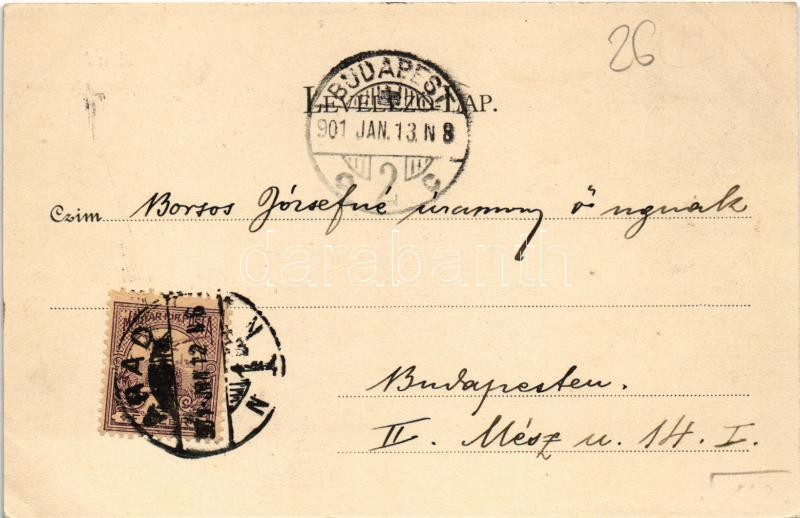 26
LEVELEZŐ-LAP.
BUDAPEST
901 JAN. 13. N 8
9 2 9
Czim Borsos Józsefné úrasszony ő ngnak
darabanth
MAGYAR KIR. POSTA
ARAD
JAN 12
Budapesten.
II. Mész u. 14. I.